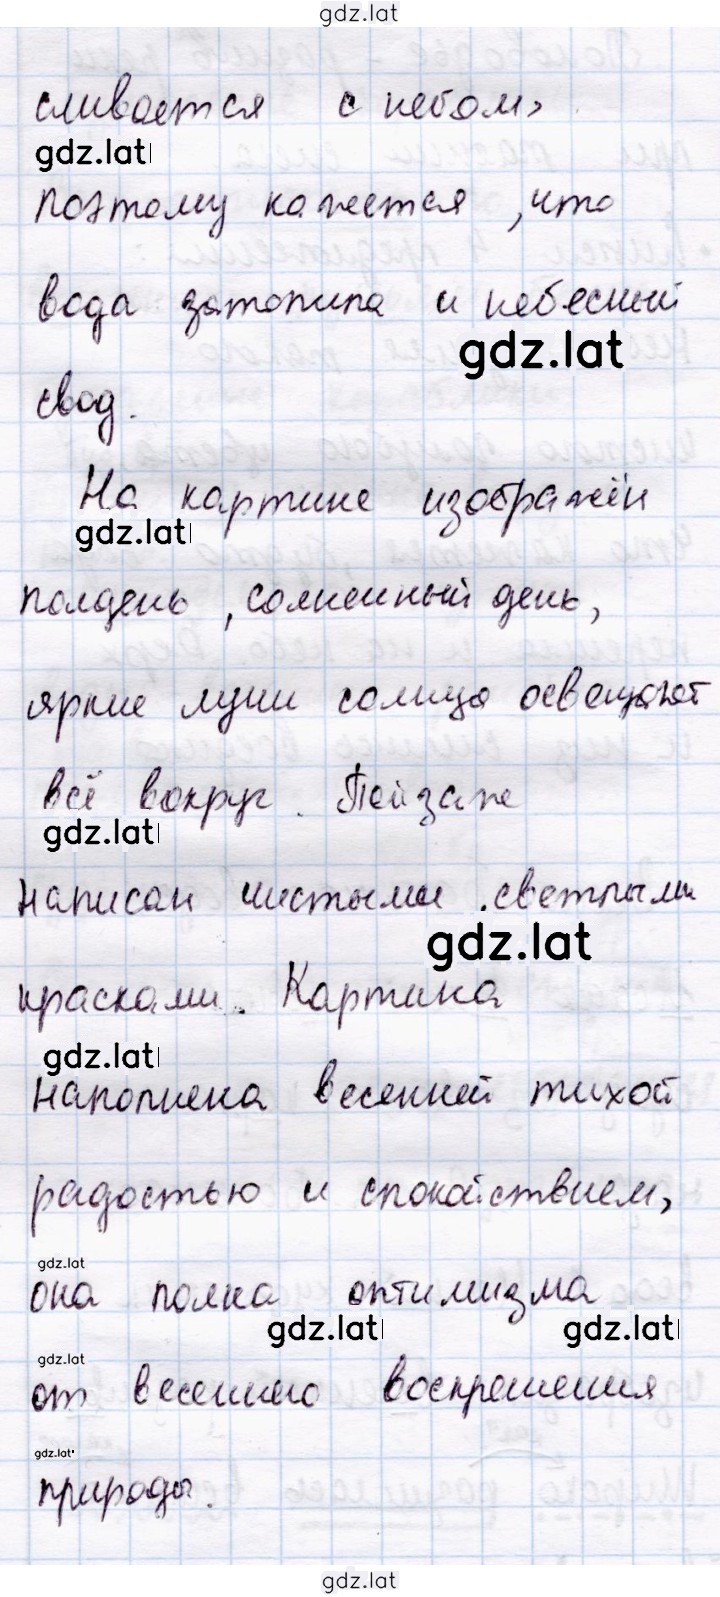 gdz.lat
сливается с небом,
gdz.lat
поэтому кажется, что
вода затопила и небесный
gdz.lat
свод.
На картине изображён
gdz.lat
полдень, солнечный день,
яркие лучи солнца освещают
всё вокруг. Пейзаж
gdz.lat
написан чистыми светлыми
gdz.lat
красками. Картина
gdz.lat
наполнена весенней тихой
радостью и спокойствием,
gdz.lat
она полна оптимизма
gdz.lat gdz.lat
gdz.lat
от весеннего воскрешения
gdz.lat
природы.
gdz.lat